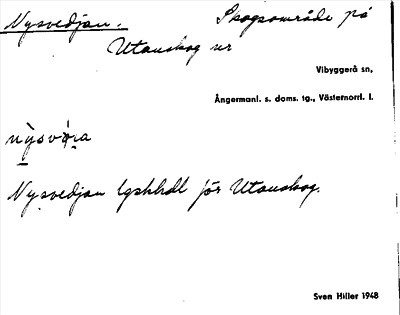 Nysvedjan. Skogsområde på
Utanskog nr
Vibyggerå sn,
Ångermanl. s. doms. tg., Västernorrl. l.
Nysvedjan för Utanskog.
Sven Hiller 1948